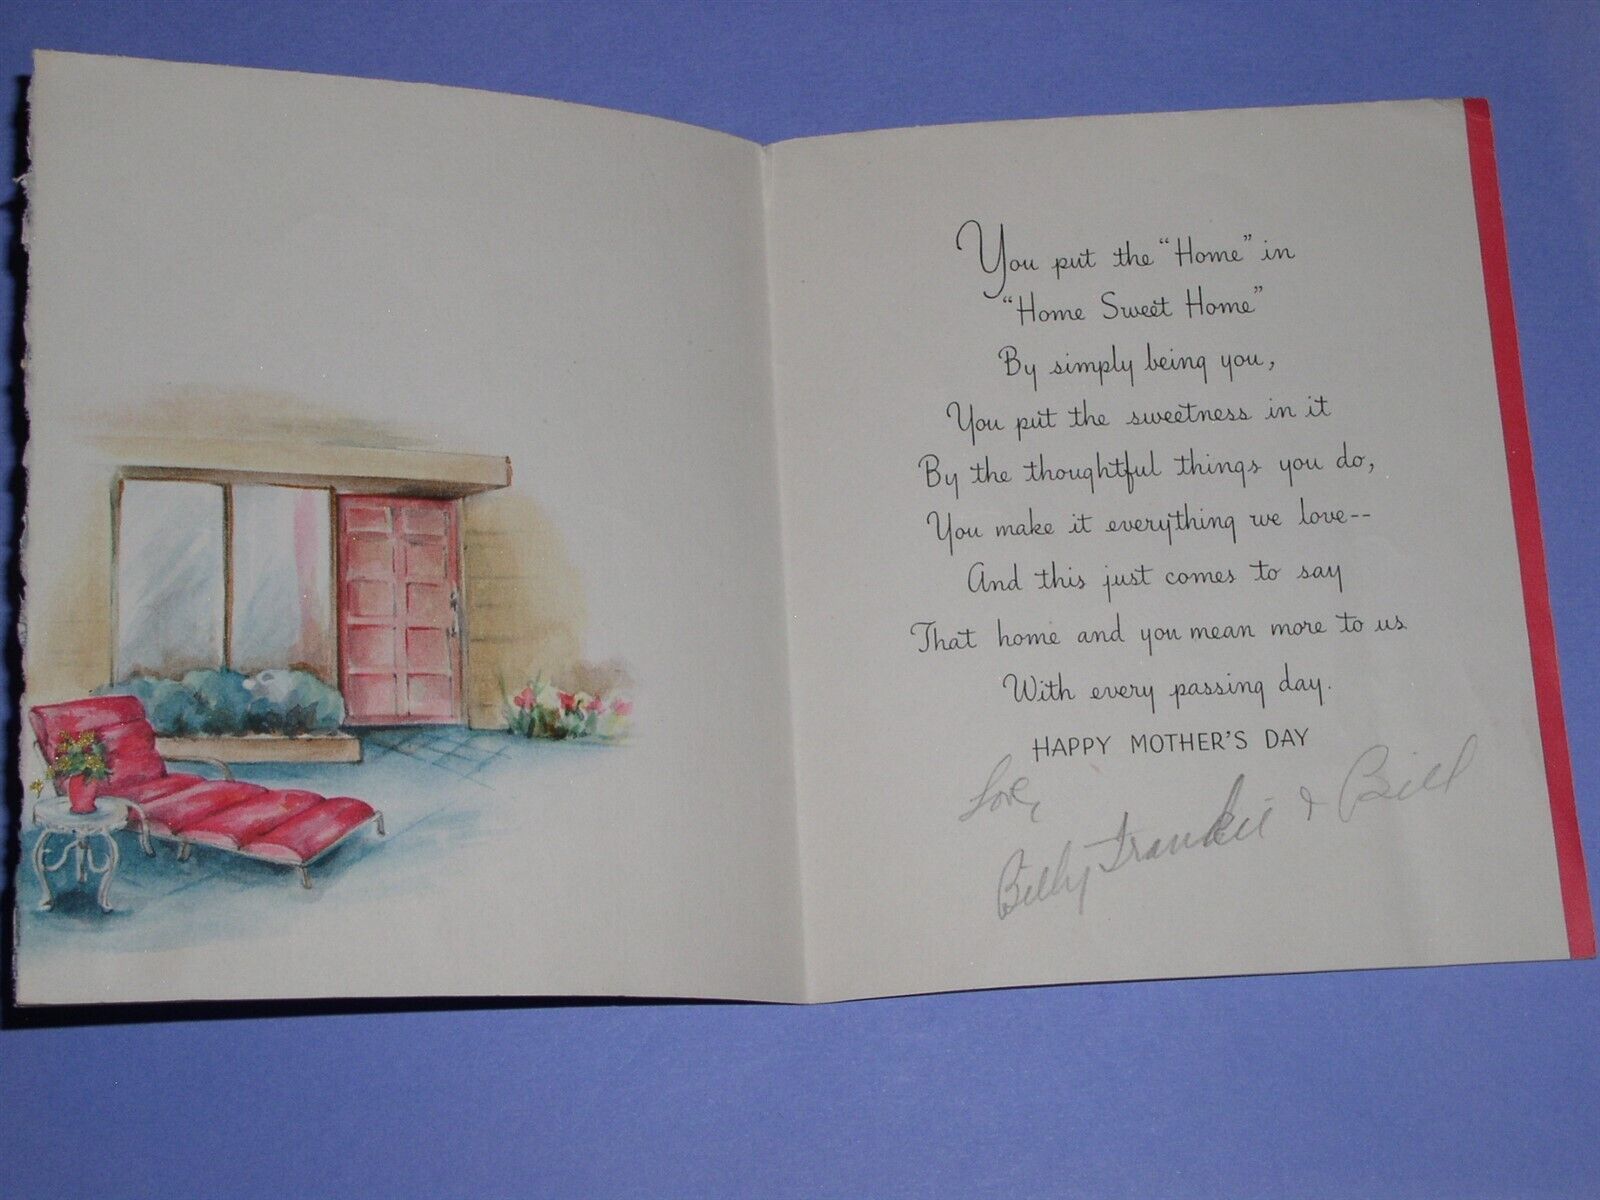 You put the "Home" in
"Home Sweet Home"
By simply being you,
You put the sweetness in it
By the thoughtful things you do,
You make it everything we love--
And this just comes to say
That home and you mean more to us
With every passing day.
HAPPY MOTHER'S DAY
Love,
Billy Frankie & Bill